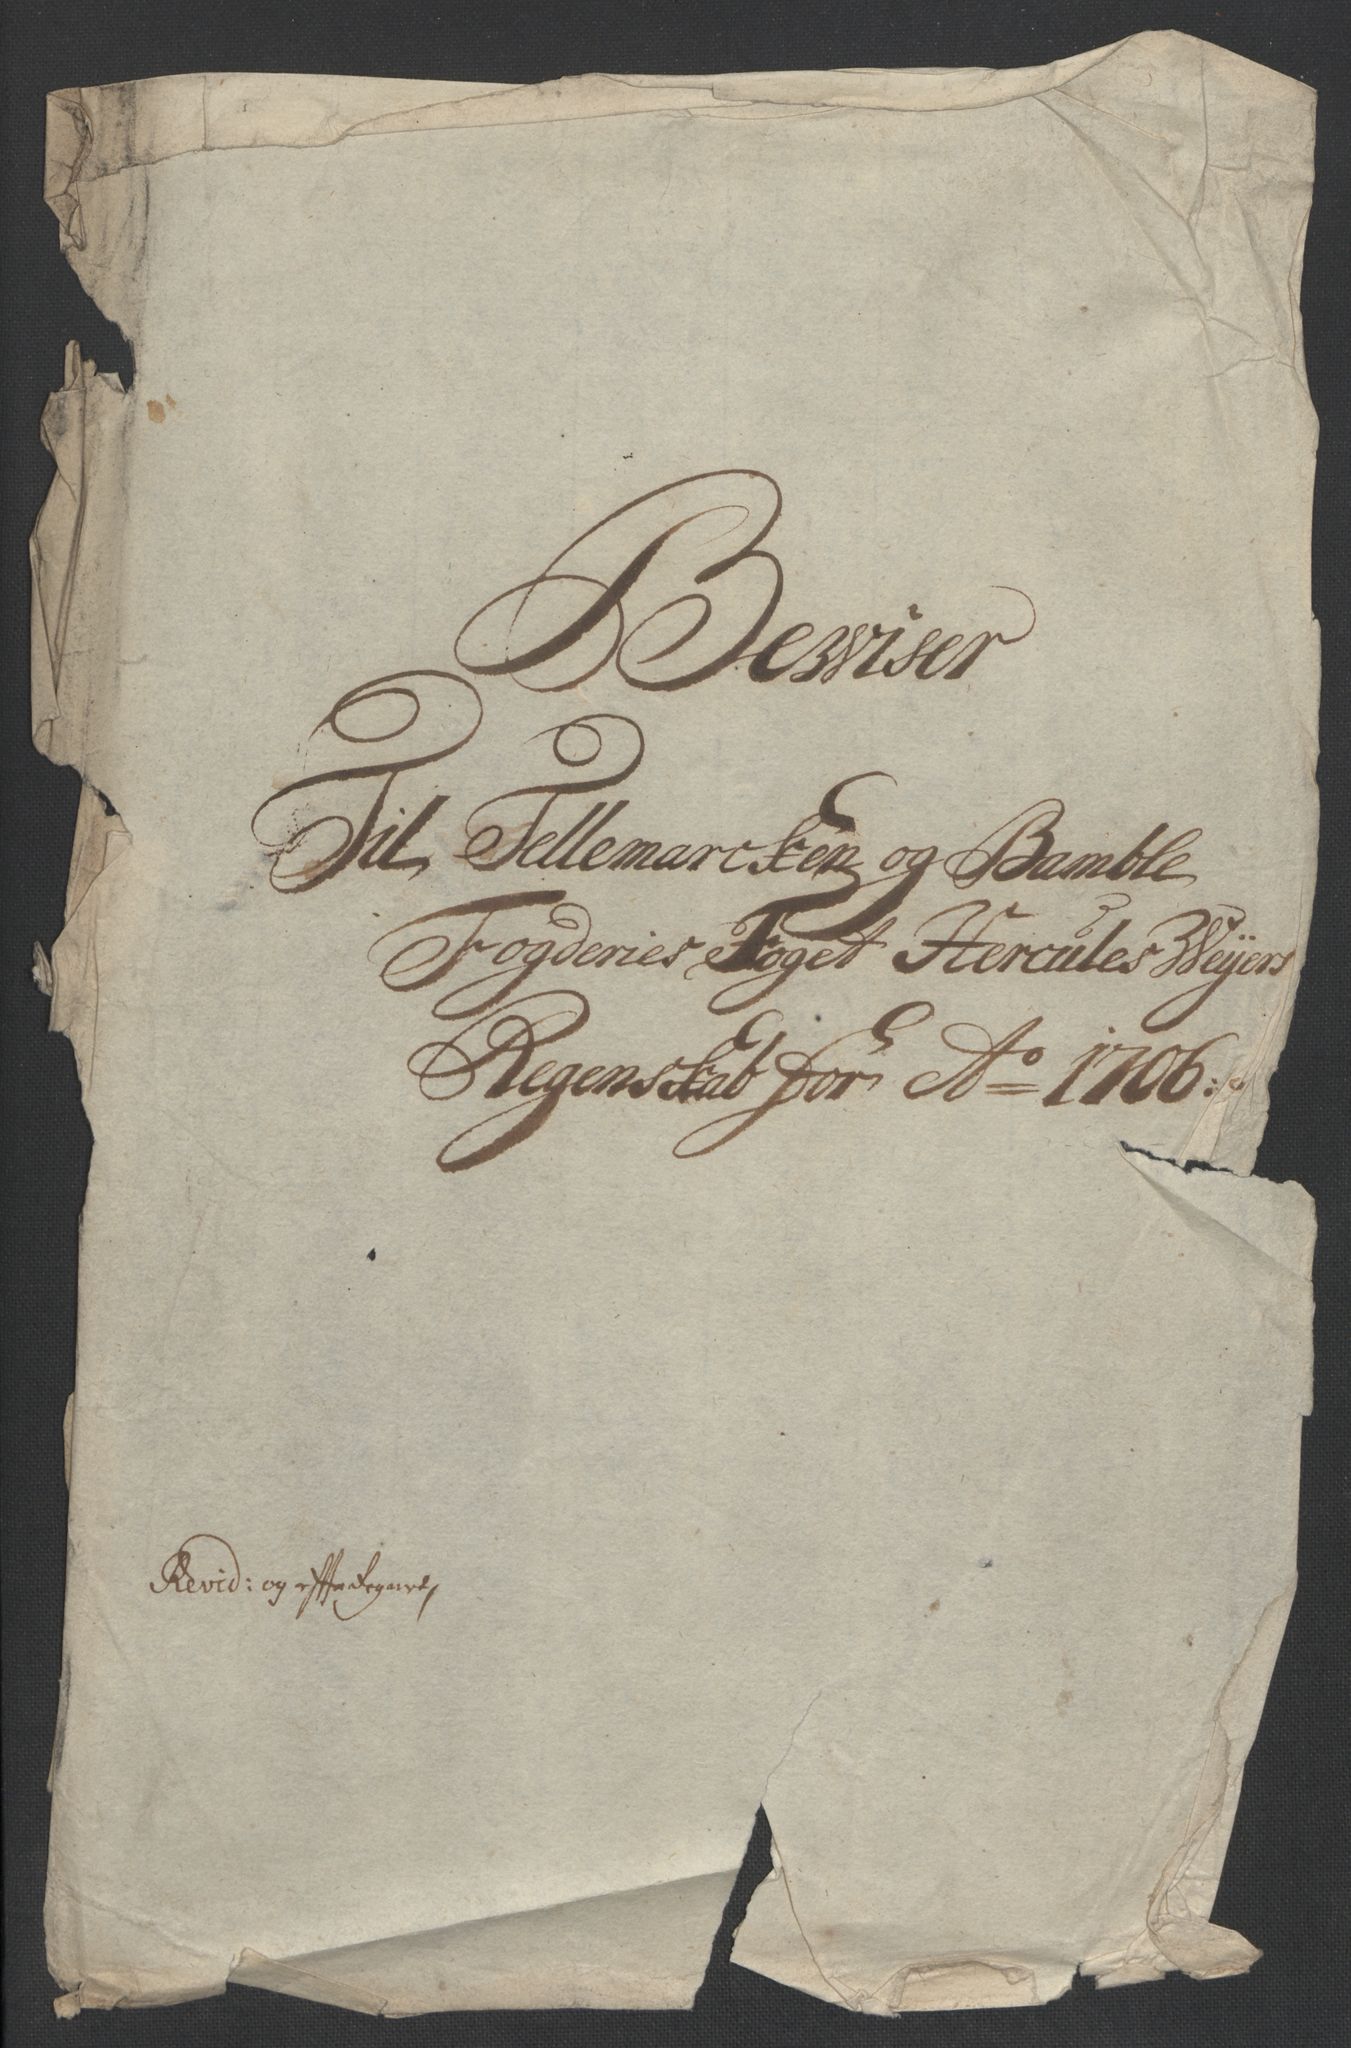 Bewiser
Til Tellemarcken og Bamble
Fogderies Foget Hercules Weÿers
Regenskab for Ao 1706:
Revid: og